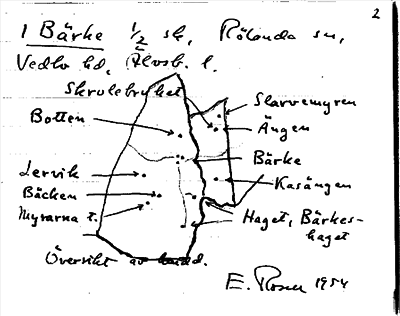 2
1 Bärke 1/2 sk, Rölanda sn,
Vedbo hd, Älvsb. l.
Skrolebryket
Botten
Slavvemyren
Ängen
Bärke
Lervik
Bäcken
Kasängen
Myrarna t.
Haget, Bärkes-
haget
Översikt av
E. Rosen 1954